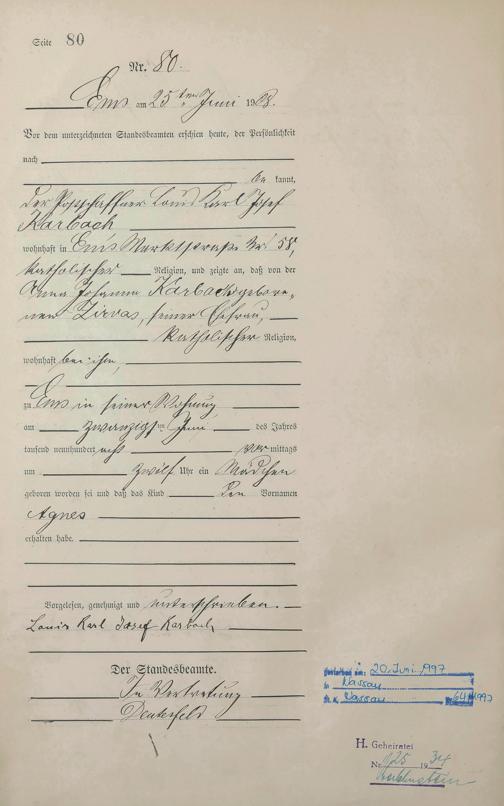 Seite 80
Nr. 80.
Ems am 25ten Juni 1908.
Vor dem unterzeichneten Standesbeamten erschien heute, der Persönlichkeit
nach
be kannt,
der Postschaffner Louis Karl Josef
Karbach
wohnhaft in Ems Marktstraße Nr 58,
katholischer Religion, und zeigte an, daß von der
Anna Johanna Karbach gebore-
nen Zirvas, seiner Ehefrau,
katholischer Religion,
wohnhaft bei ihm,
zu Ems in seiner Wohnung
am zwanzigsten Juni des Jahres
tausend neunhundert acht vor mittags
um zwölf Uhr ein Mädchen
geboren worden sei und daß das Kind den Vornamen
Agnes
erhalten habe.
Vorgelesen, genehmigt und unterschrieben.
Louis Karl Josef Karbach
Der Standesbeamte.
In Vertretung
gestorben am: 20. Juni 1997
in Nassau
St. A. Nassau 64/1997
H. Geheiratet
Nr. 1934